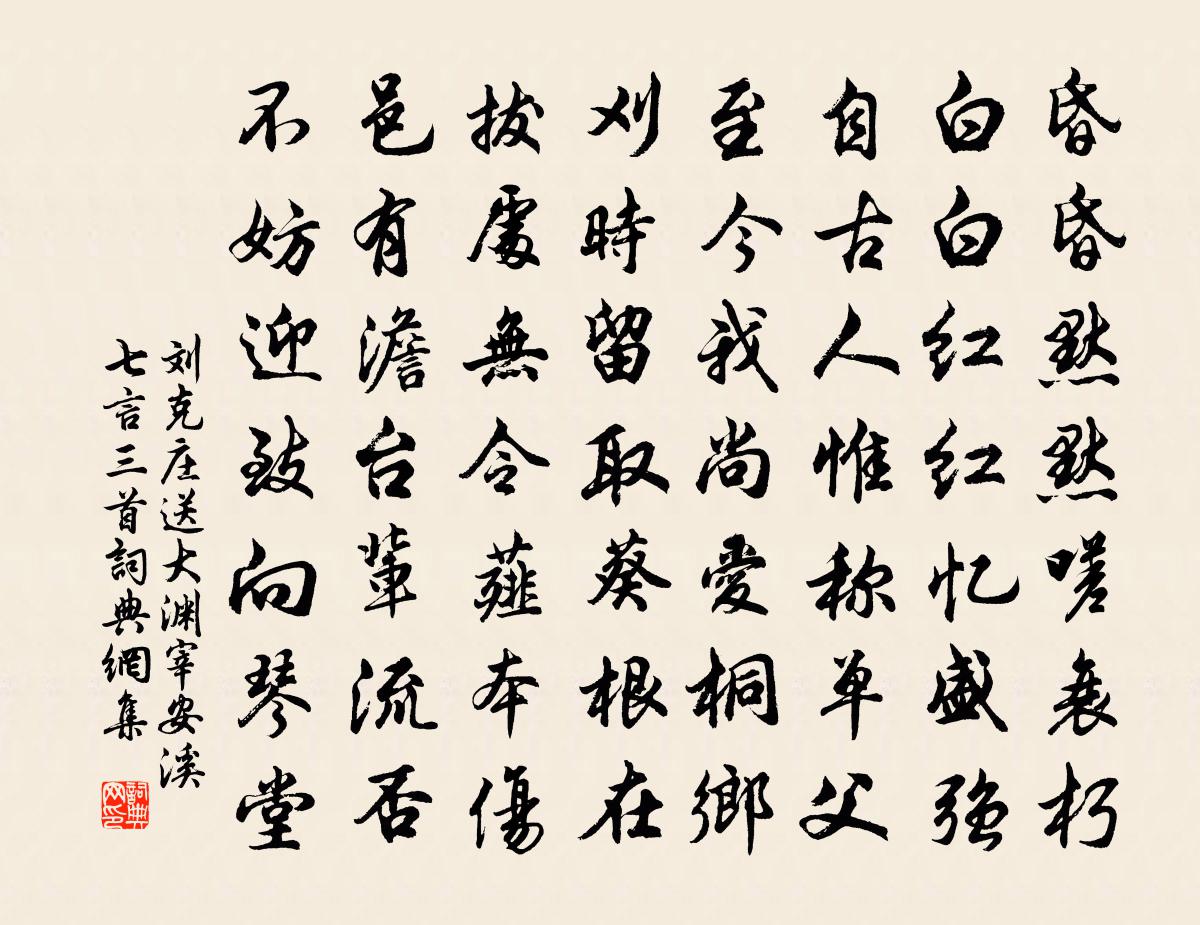 昏昏黙黙嗟衰朽
白白红红忆盛强
自古人惟称单父
至今我尚愛桐鄉
刈時留取葵根在
拔處無令薤本傷
邑有澹台輩流否
不妨迎致向琴堂
刘克庄送大渊宰安溪
七言三首詞典網集
詞典网印